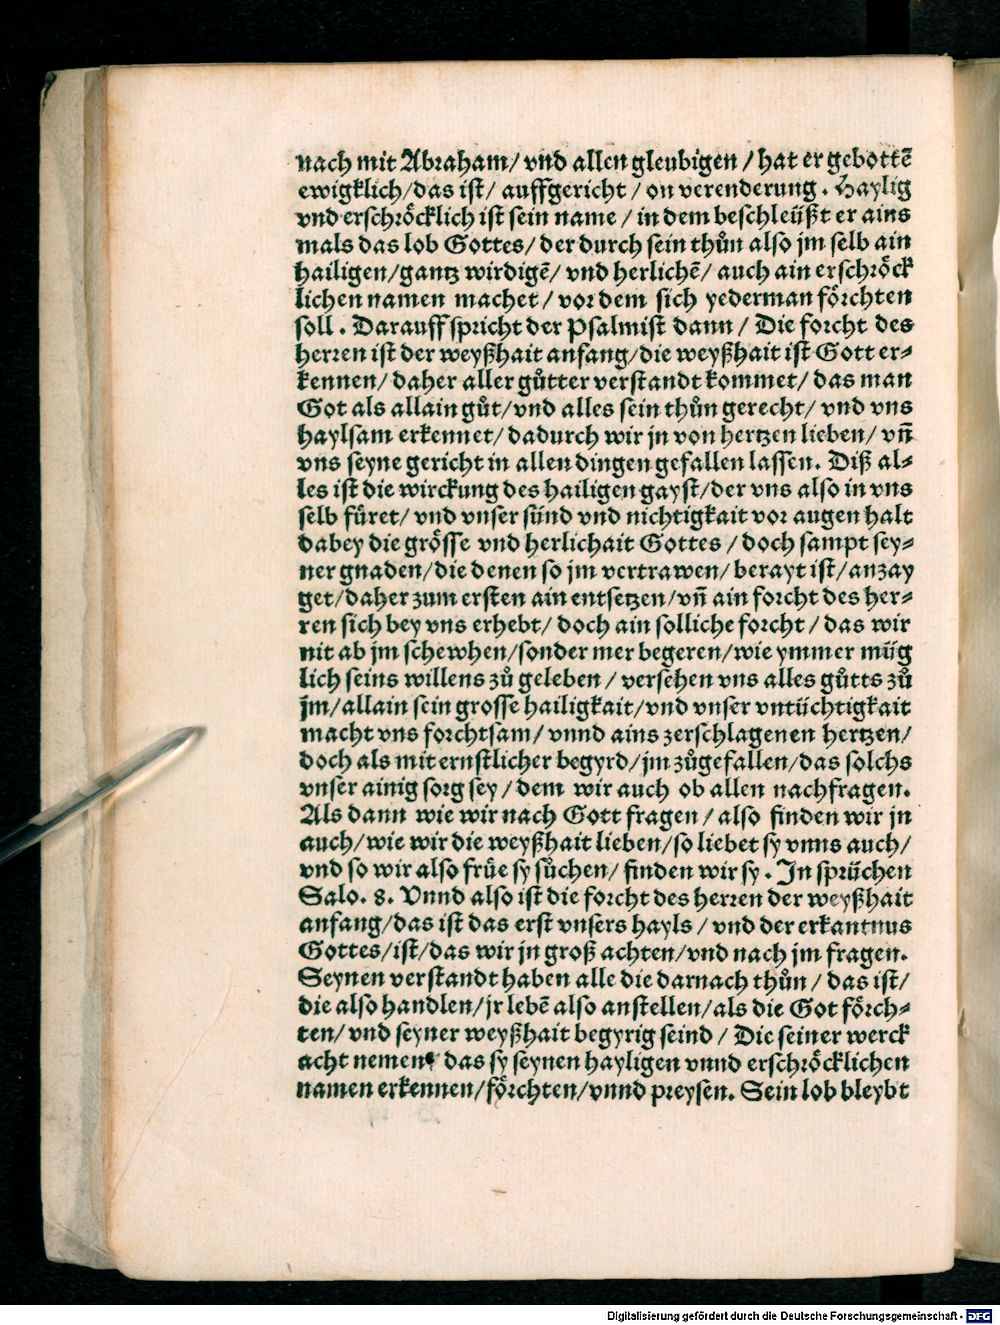 nach mit Abraham/ vnd allen gleubigen / hat er gebottē
ewigklich/das ist/ auffgericht / on verenderung . Haylig
vnd erschröcklich ist sein name / in dem beschleüßt er ains
mals das lob Gottes/ der durch sein thůn also jm selb ain
hailigen/gantz wirdigē/ vnd herlichē/ auch ain erschröck
lichen namen machet / vor dem sich yederman förchten
soll . Darauff spricht der Psalmist dann / Die forcht des
herren ist der weyßhait anfang/die weyßhait ist Gott er⸗
kennen/ daher aller gůtter verstandt kommet/ das man
Got als allain gůt/vnd alles sein thůn gerecht/ vnd vns
haylsam erkennet/ dadurch wir jn von hertzen lieben/ vñ
vns seyne gericht in allen dingen gefallen lassen. Diß al⸗
les ist die wirckung des hailigen gayst/der vns also in vns
selb fůret/ vnd vnser sünd vnd nichtigkait vor augen halt
dabey die grösse vnd herlichait Gottes / doch sampt sey⸗
ner gnaden/die denen so jm vertrawen/ berayt ist/anzay
get/daher zum ersten ain entsetzen/vñ ain forcht des her⸗
ren sich bey vns erhebt/ doch ain solliche forcht / das wir
nit ab jm schewhen/sonder mer begeren/wie ymmer müg
lich seins willens zů geleben / versehen vns alles gůtts zů
jm/allain sein grosse hailigkait/vnd vnser vntüchtigkait
macht vns forchtsam/ vnnd ains zerschlagenen hertzen/
doch als mit ernstlicher begyrd/jm zůgefallen/das solchs
vnser ainig sorg sey / dem wir auch ob allen nachfragen.
Als dann wie wir nach Gott fragen / also finden wir jn
auch/wie wir die weyßhait lieben/so liebet sy vnns auch/
vnd so wir also früe sy sůchen/ finden wir sy . In sprüchen
Salo. 8. Vnnd also ist die forcht des herren der weyßhait
anfang/das ist das erst vnsers hayls / vnd der erkantnus
Gottes/ist/das wir jn groß achten/vnd nach jm fragen.
Seynen verstandt haben alle die darnach thůn / das ist/
die also handlen/jr lebē also anstellen/als die Got förch⸗
ten/ vnd seyner weyßhait begyrig seind / Die seiner werck
acht nemen/ das sy seynen hayligen vnnd erschröcklichen
namen erkennen/förchten/vnnd preysen. Sein lob bleybt
Digitalisierung gefördert durch die Deutsche Forschungsgemeinschaft - DFG